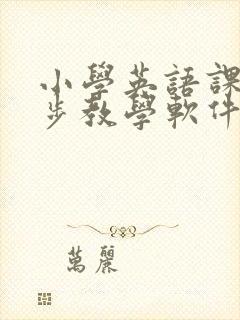 小學英語課
步教學軟件
萬麗